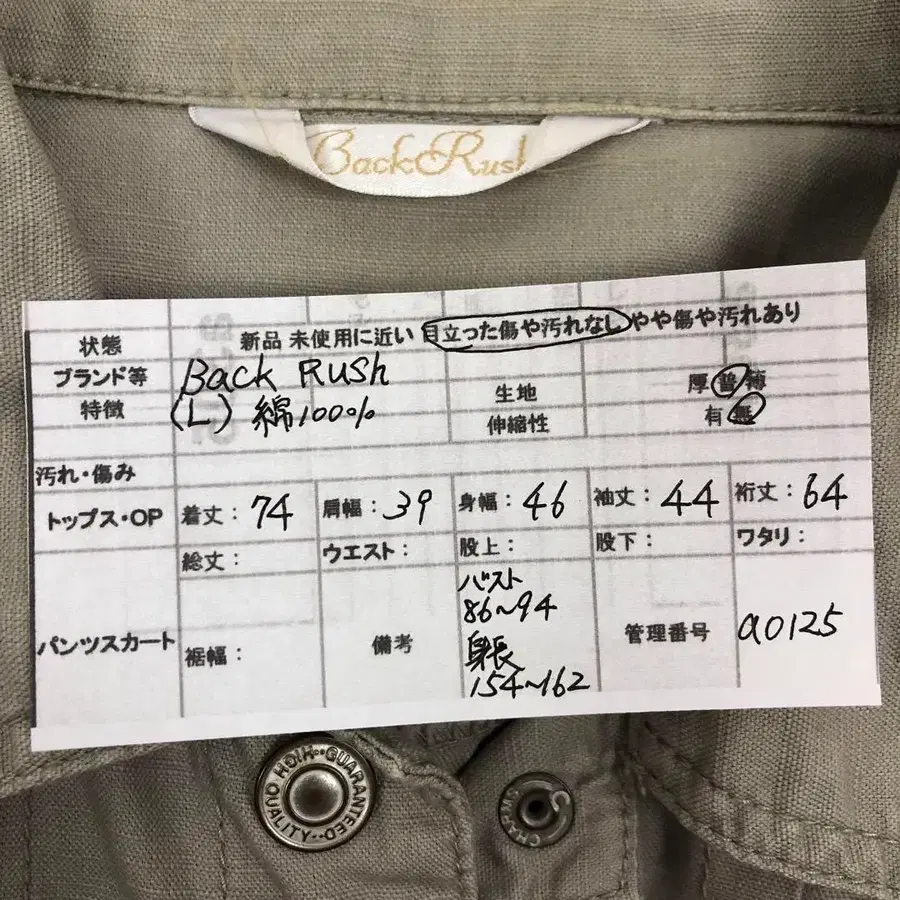 Back Rush
状態 新品 未使用に近い 目立った傷や汚れなし やや傷や汚れあり
ブランド等 Back Rush 生地 厚 普 薄
特徴 (L) 綿100% 伸縮性 有 無
汚れ・傷み
トップス・OP 着丈: 74 肩幅: 39 身幅: 46 袖丈: 44 裄丈: 64
総丈: ウエスト: 股上: 股下: ワタリ:
パンツスカート 裾幅: 備考 バスト 管理番号 a0125
86~94
身長
154~162
HIGH QUALITY GUARANTEED